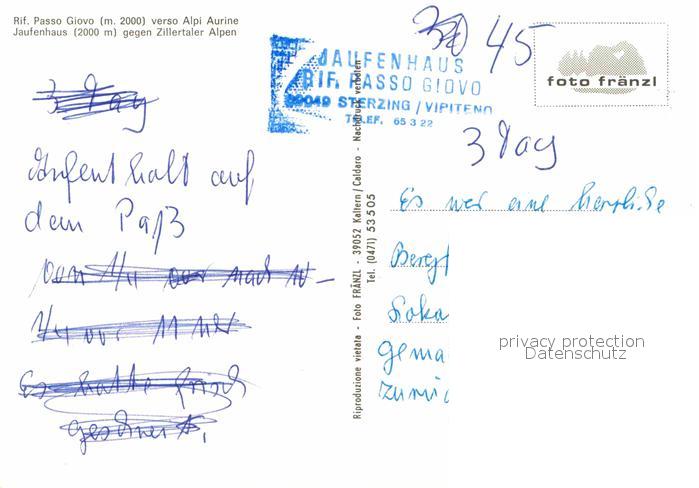 Rif. Passo Giovo (m. 2000) verso Alpi Aurine
Jaufenhaus (2000 m) gegen Zillertaler Alpen
3 Tag
Aufenthalt auf
dem Paß
vom 1/4 vor nach 10 -
1/4 vor 11 Uhr
Es hatte frisch
geschneit,
JAUFENHAUS
RIF. PASSO GIOVO
39049 STERZING / VIPITENO
TELEF. 65 3 22
Riproduzione vietata - Foto FRÄNZL - 39052 Kaltern / Caldaro - Nachdruck verboten
Tel. (0471) 53505
30 45
foto fränzl
3 Tag
Es war eine herrliche
Bergf
Loka
gema
zurüc
privacy protection
Datenschutz